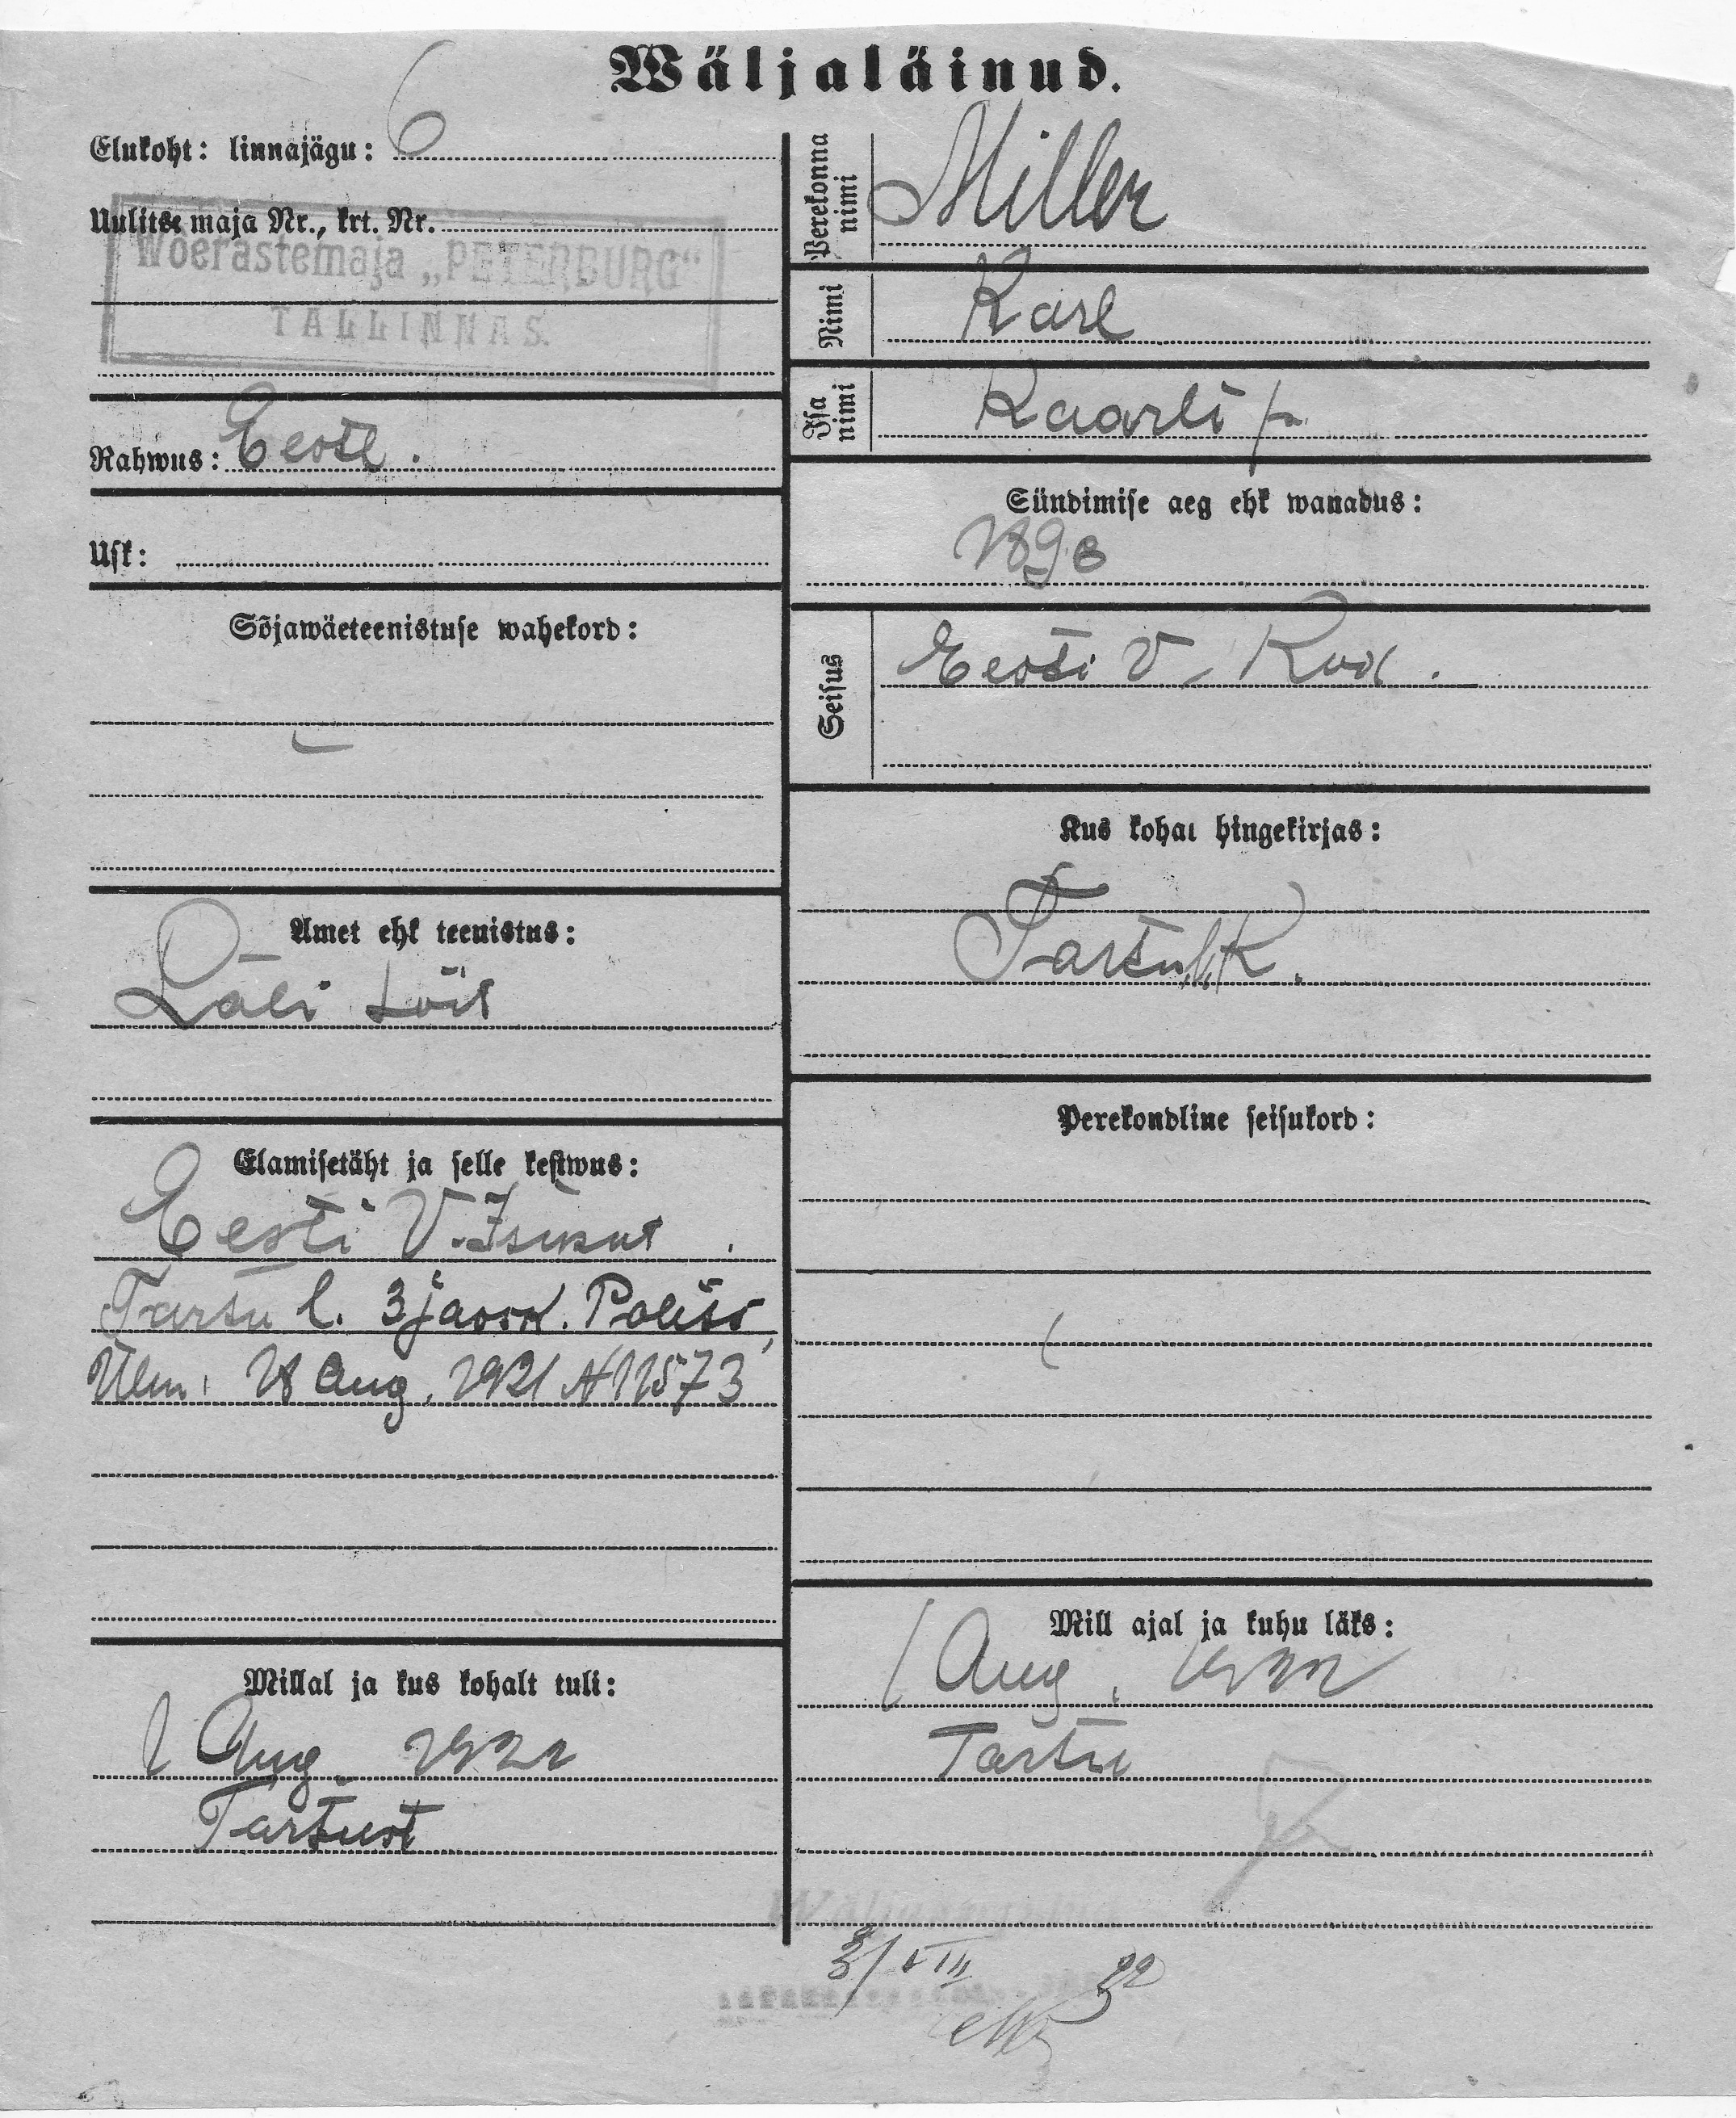 Wäljaläinud.
Elukoht: linnajägu: 6
Uulitse maja Nr., krt. Nr.
Wõerastemaja „PETERBURG“
TALLINNAS.
Rahwus: Eestl.
Usk:
Sõjawäeteenistuse wahekord:
Amet ehk teenistus:
Elamisetäht ja selle kestwus:
Eesti V. Isikut
Tartu l. 3 jaosk. Polits,
18 Aug. 1921 № 11573
Millal ja kus kohalt tuli:
1 Aug. 1922
Tartust
Perekonna nimi
Miller
Nimi
Karl
Isa nimi
Kaarli p.
Sündimise aeg ehk wanadus:
1898
Seisus
Eesti V. Kod.
Kus kohal hingekirjas:
Tartu
Perekondline seisukord:
Mill ajal ja kuhu läks:
1 Aug. 1922
Tartu
3/VIII 22